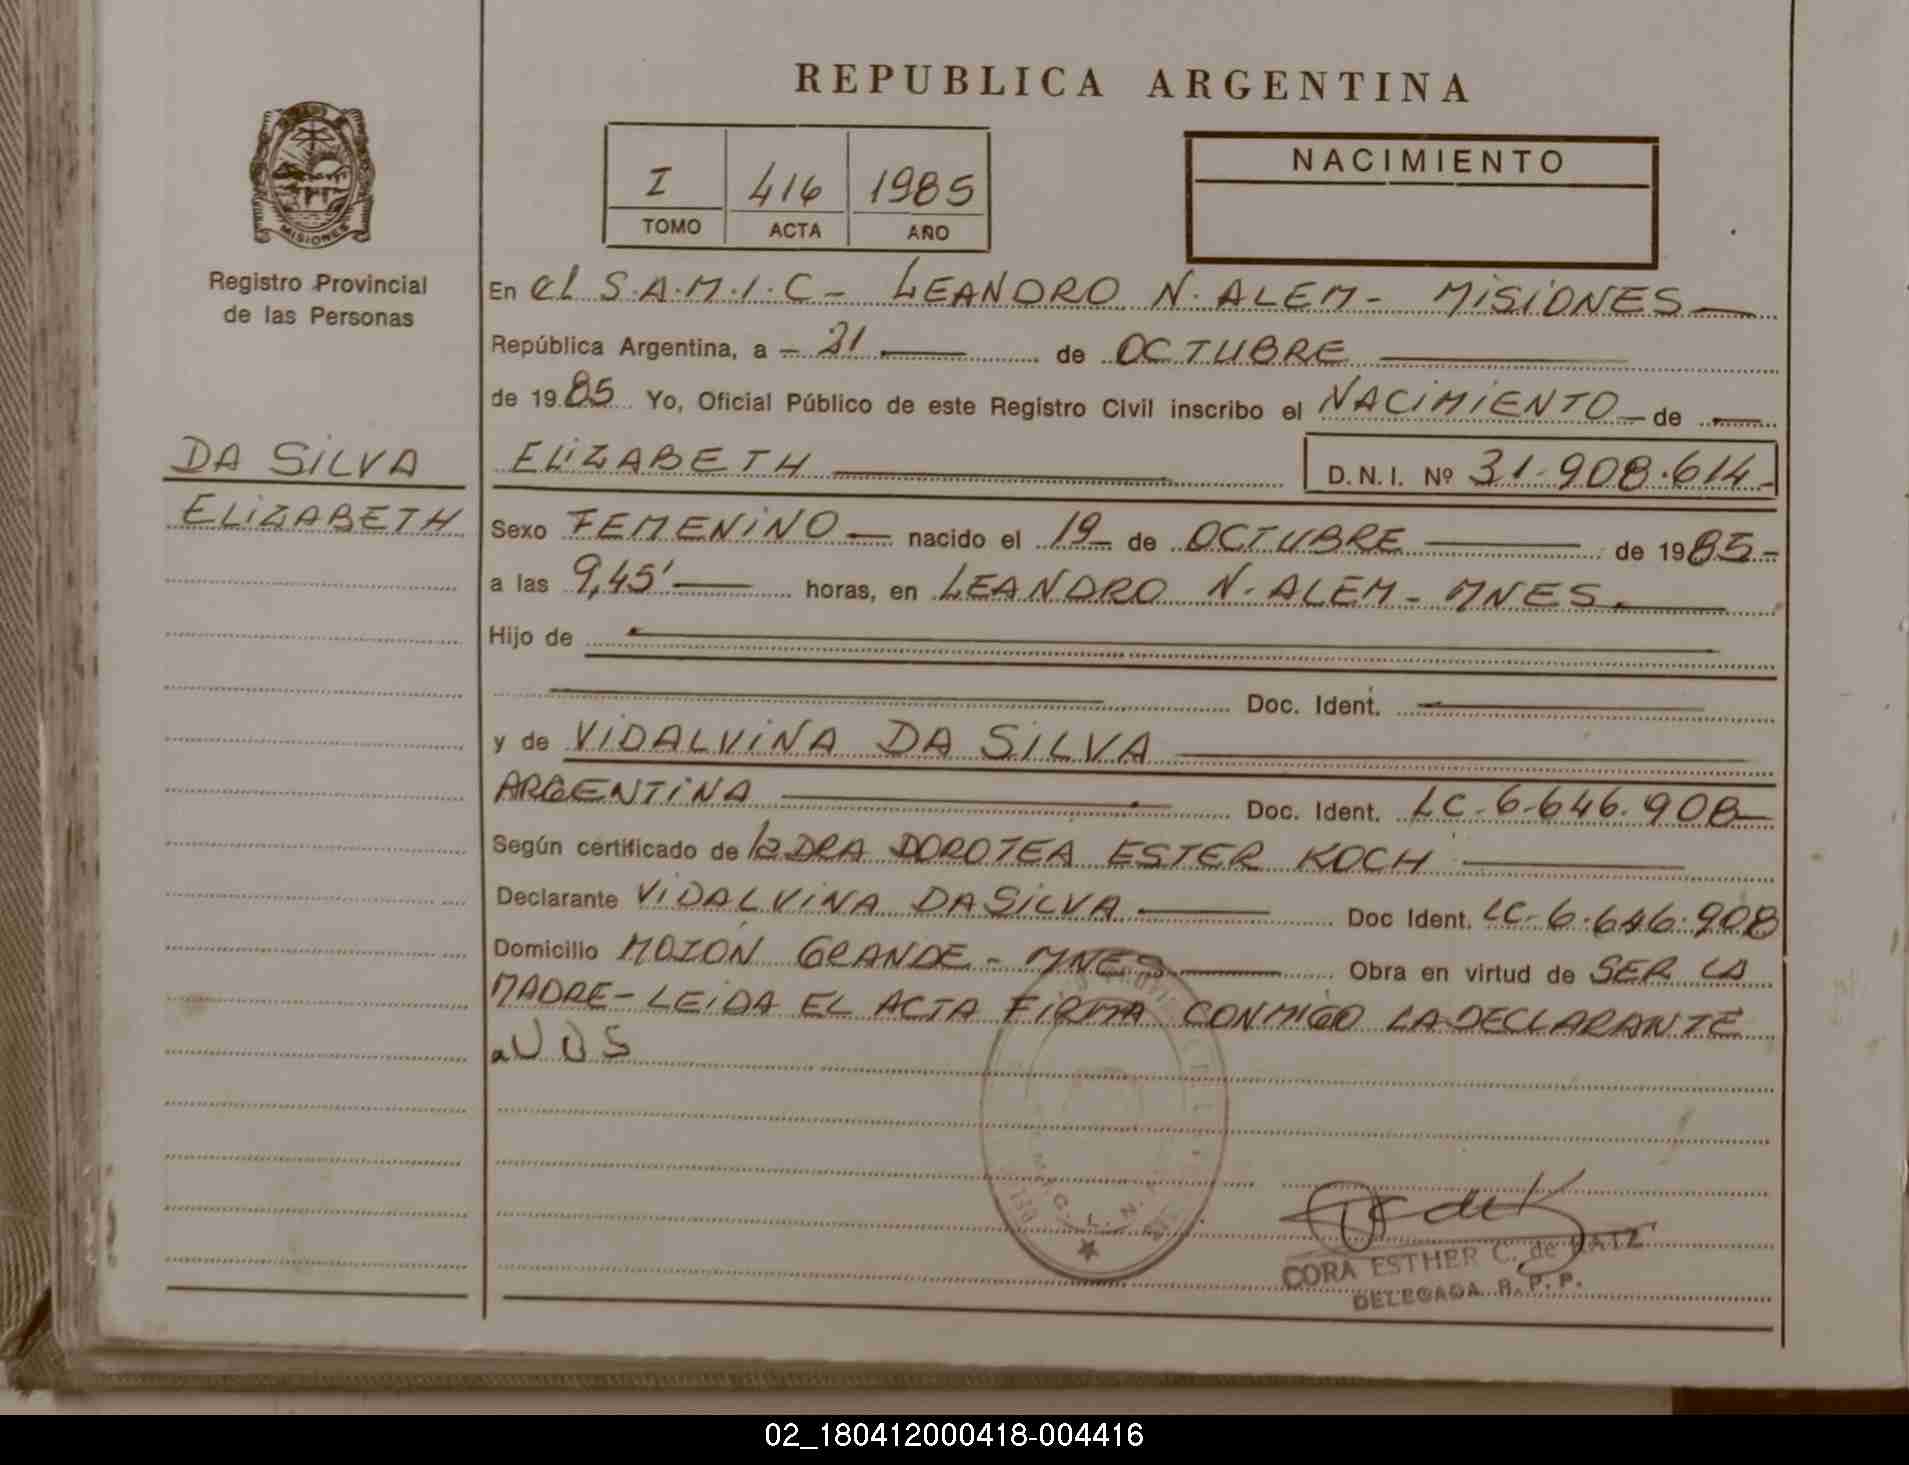 REPUBLICA ARGENTINA
MISIONES
Registro Provincial
de las Personas
I 416 1985
TOMO ACTA AÑO
NACIMIENTO
En el S.A.M.I.C - LEANDRO N. ALEM - MISIONES
República Argentina, a - 21 de OCTUBRE
de 1985 Yo, Oficial Público de este Registro Civil inscribo el NACIMIENTO de
DA SILVA
ELIZABETH
ELIZABETH D.N.I. Nº 31.908.614
Sexo FEMENINO nacido el 19 de OCTUBRE de 1985-
a las 9,45' horas, en LEANDRO N. ALEM - MNES.
Hijo de
Doc. Ident.
y de VIDALVINA DA SILVA
ARGENTINA Doc. Ident. LC-6-646.908
Según certificado de la DRA DOROTEA ESTER KOCH
Declarante VIDALVINA DA SILVA Doc Ident. LC-6.646.908
Domicilio MOJON GRANDE - MNES Obra en virtud de SER LA
MADRE - LEIDA EL ACTA FIRMA CONMIGO LA DECLARANTE
CORA ESTHER C. de KATZ
DELEGADA R.P.P.
02_180412000418-004416